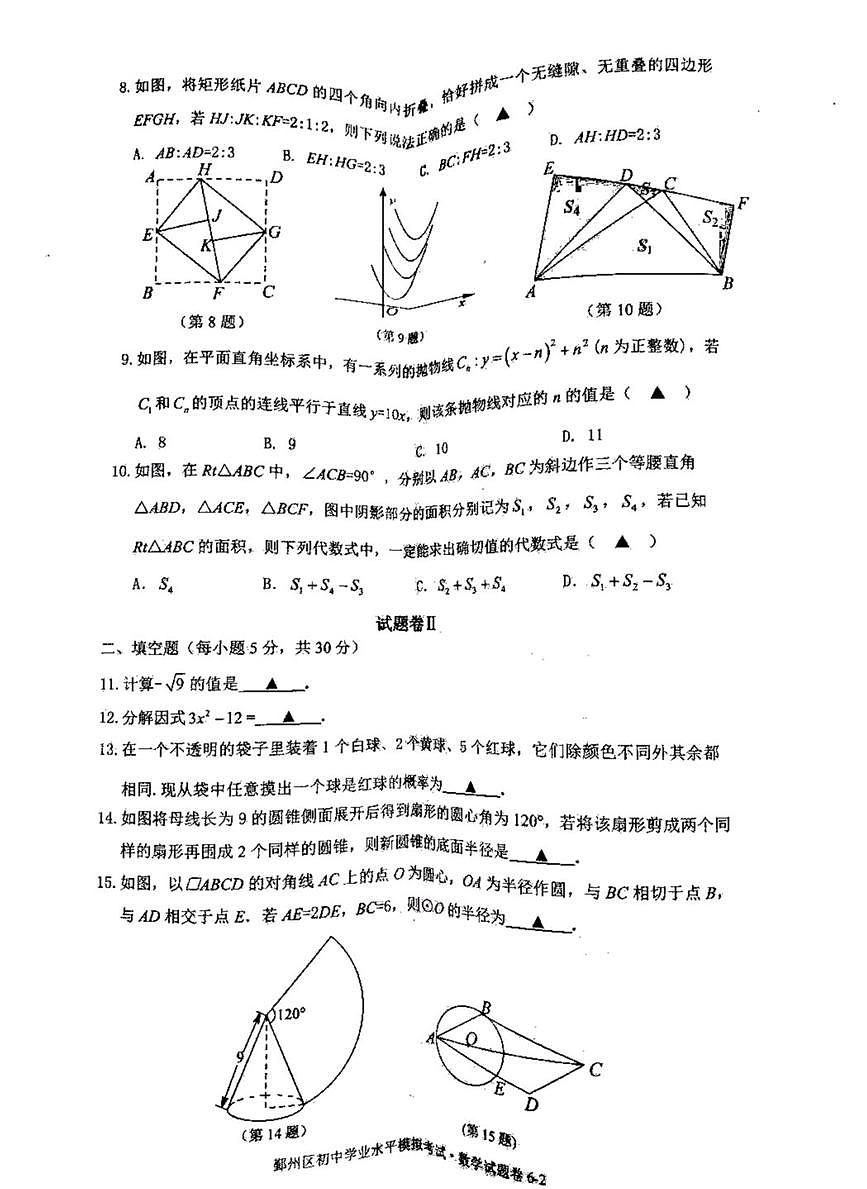 8. 如图，将矩形纸片 ABCD 的四个角向内折叠，恰好拼成一个无缝隙、无重叠的四边形
EFGH，若 HJ:JK:KF=2:1:2，则下列说法正确的是（ ▲ ）
A. AB:AD=2:3 B. EH:HG=2:3 C. BC:FH=2:3 D. AH:HD=2:3
A H D
E J G
K
B F C
（第 8 题）
y
O x
（第 9 题）
E D S₃ C F
S₄ S₂
S₁
A B
（第 10 题）
9. 如图，在平面直角坐标系中，有一系列的抛物线 Cₙ : y=(x−n)²+n²（n 为正整数），若
C₁ 和 Cₙ 的顶点的连线平行于直线 y=10x，则该条抛物线对应的 n 的值是（ ▲ ）
A. 8 B. 9 C. 10 D. 11
10. 如图，在 Rt△ABC 中，∠ACB=90°，分别以 AB，AC，BC 为斜边作三个等腰直角
△ABD，△ACE，△BCF，图中阴影部分的面积分别记为 S₁，S₂，S₃，S₄，若已知
Rt△ABC 的面积，则下列代数式中，一定能求出确切值的代数式是（ ▲ ）
A. S₄ B. S₁+S₄−S₃ C. S₂+S₃+S₄ D. S₁+S₂−S₃
试题卷Ⅱ
二、填空题（每小题 5 分，共 30 分）
11. 计算-√9 的值是 ▲ .
12. 分解因式 3x²−12= ▲ .
13. 在一个不透明的袋子里装着 1 个白球、2 个黄球、5 个红球，它们除颜色不同外其余都
相同. 现从袋中任意摸出一个球是红球的概率为 ▲ .
14. 如图将母线长为 9 的圆锥侧面展开后得到扇形的圆心角为 120°，若将该扇形剪成两个同
样的扇形再围成 2 个同样的圆锥，则新圆锥的底面半径是 ▲ .
15. 如图，以□ABCD 的对角线 AC 上的点 O 为圆心，OA 为半径作圆，与 BC 相切于点 B，
与 AD 相交于点 E. 若 AE=2DE，BC=6，则⊙O 的半径为 ▲ .
120°
9
（第 14 题）
B
A O
C
E
D
（第 15 题）
鄞州区初中学业水平模拟考试·数学试题卷 6-2